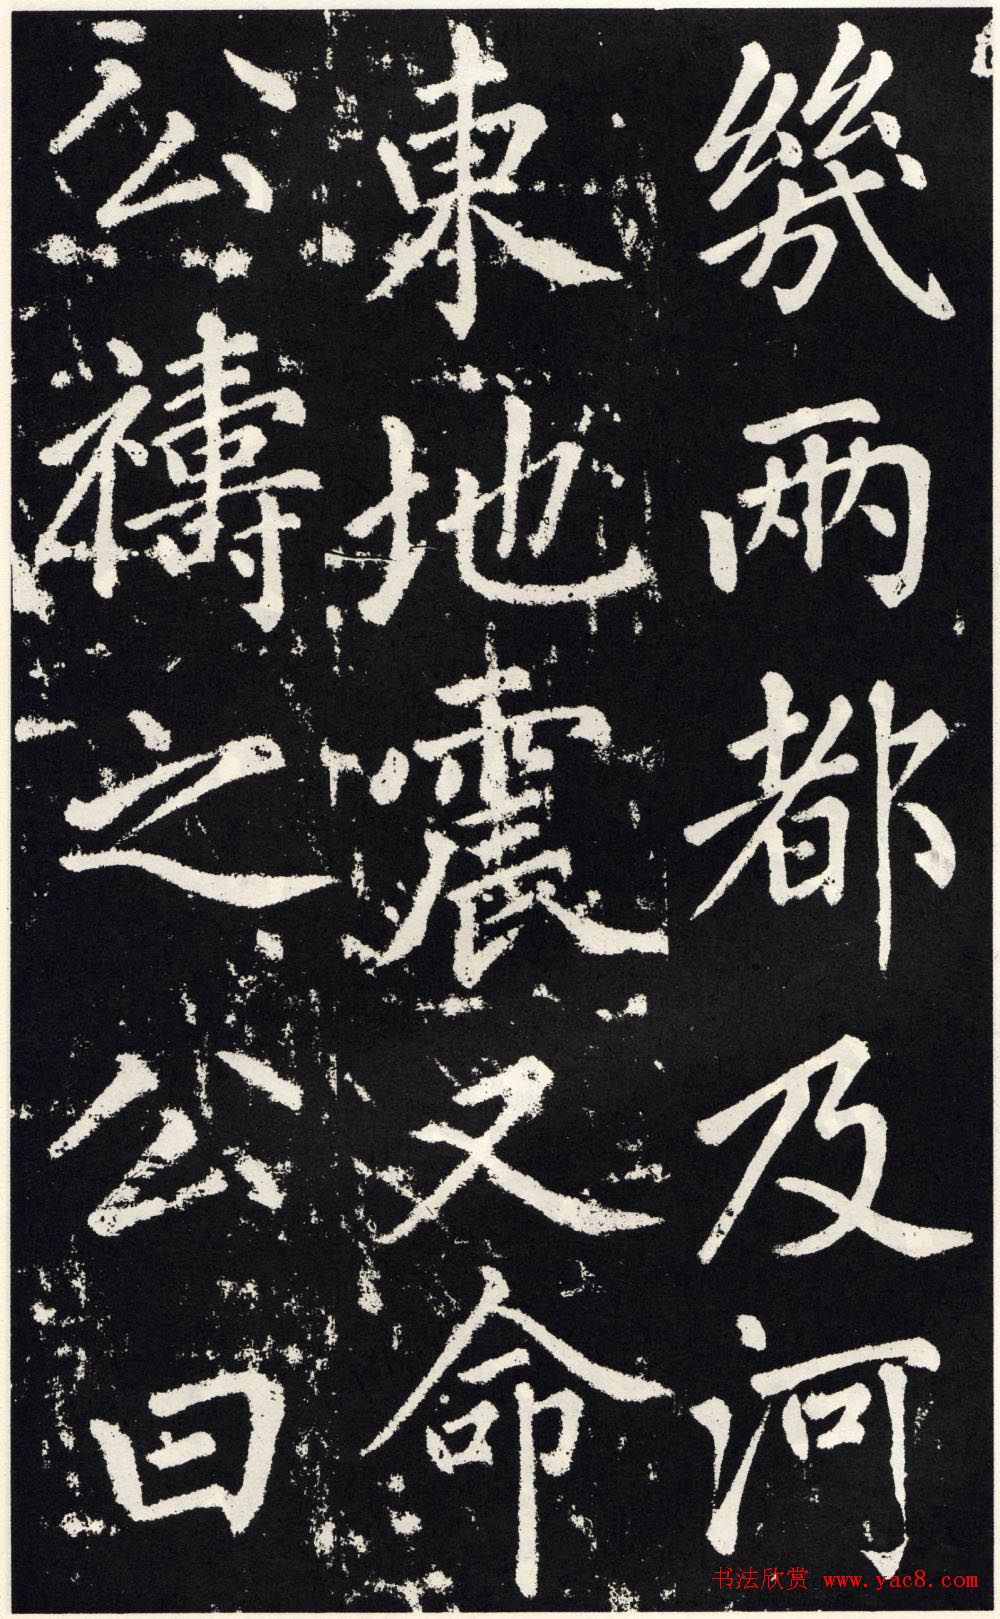 幾兩都及河
東地震又命
公禱之公曰
书法欣赏 www.yac8.com